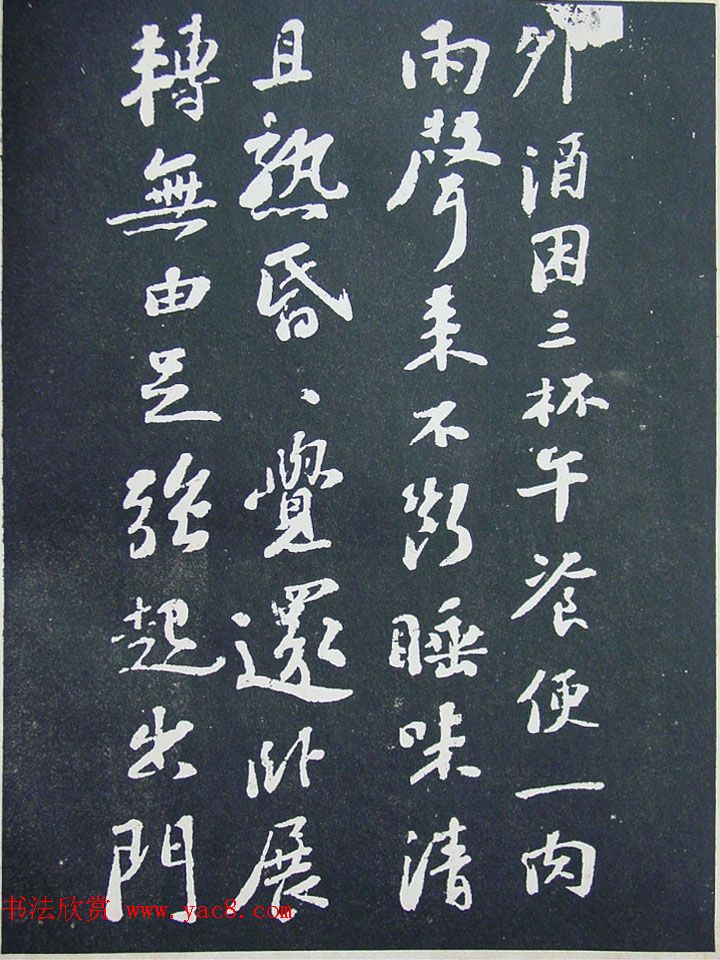 外酒困三杯午餐便一肉
雨聲来不断睡味清
且熟昏、覺還卧展
轉無由足強起出門
书法欣赏 www.yac8.com